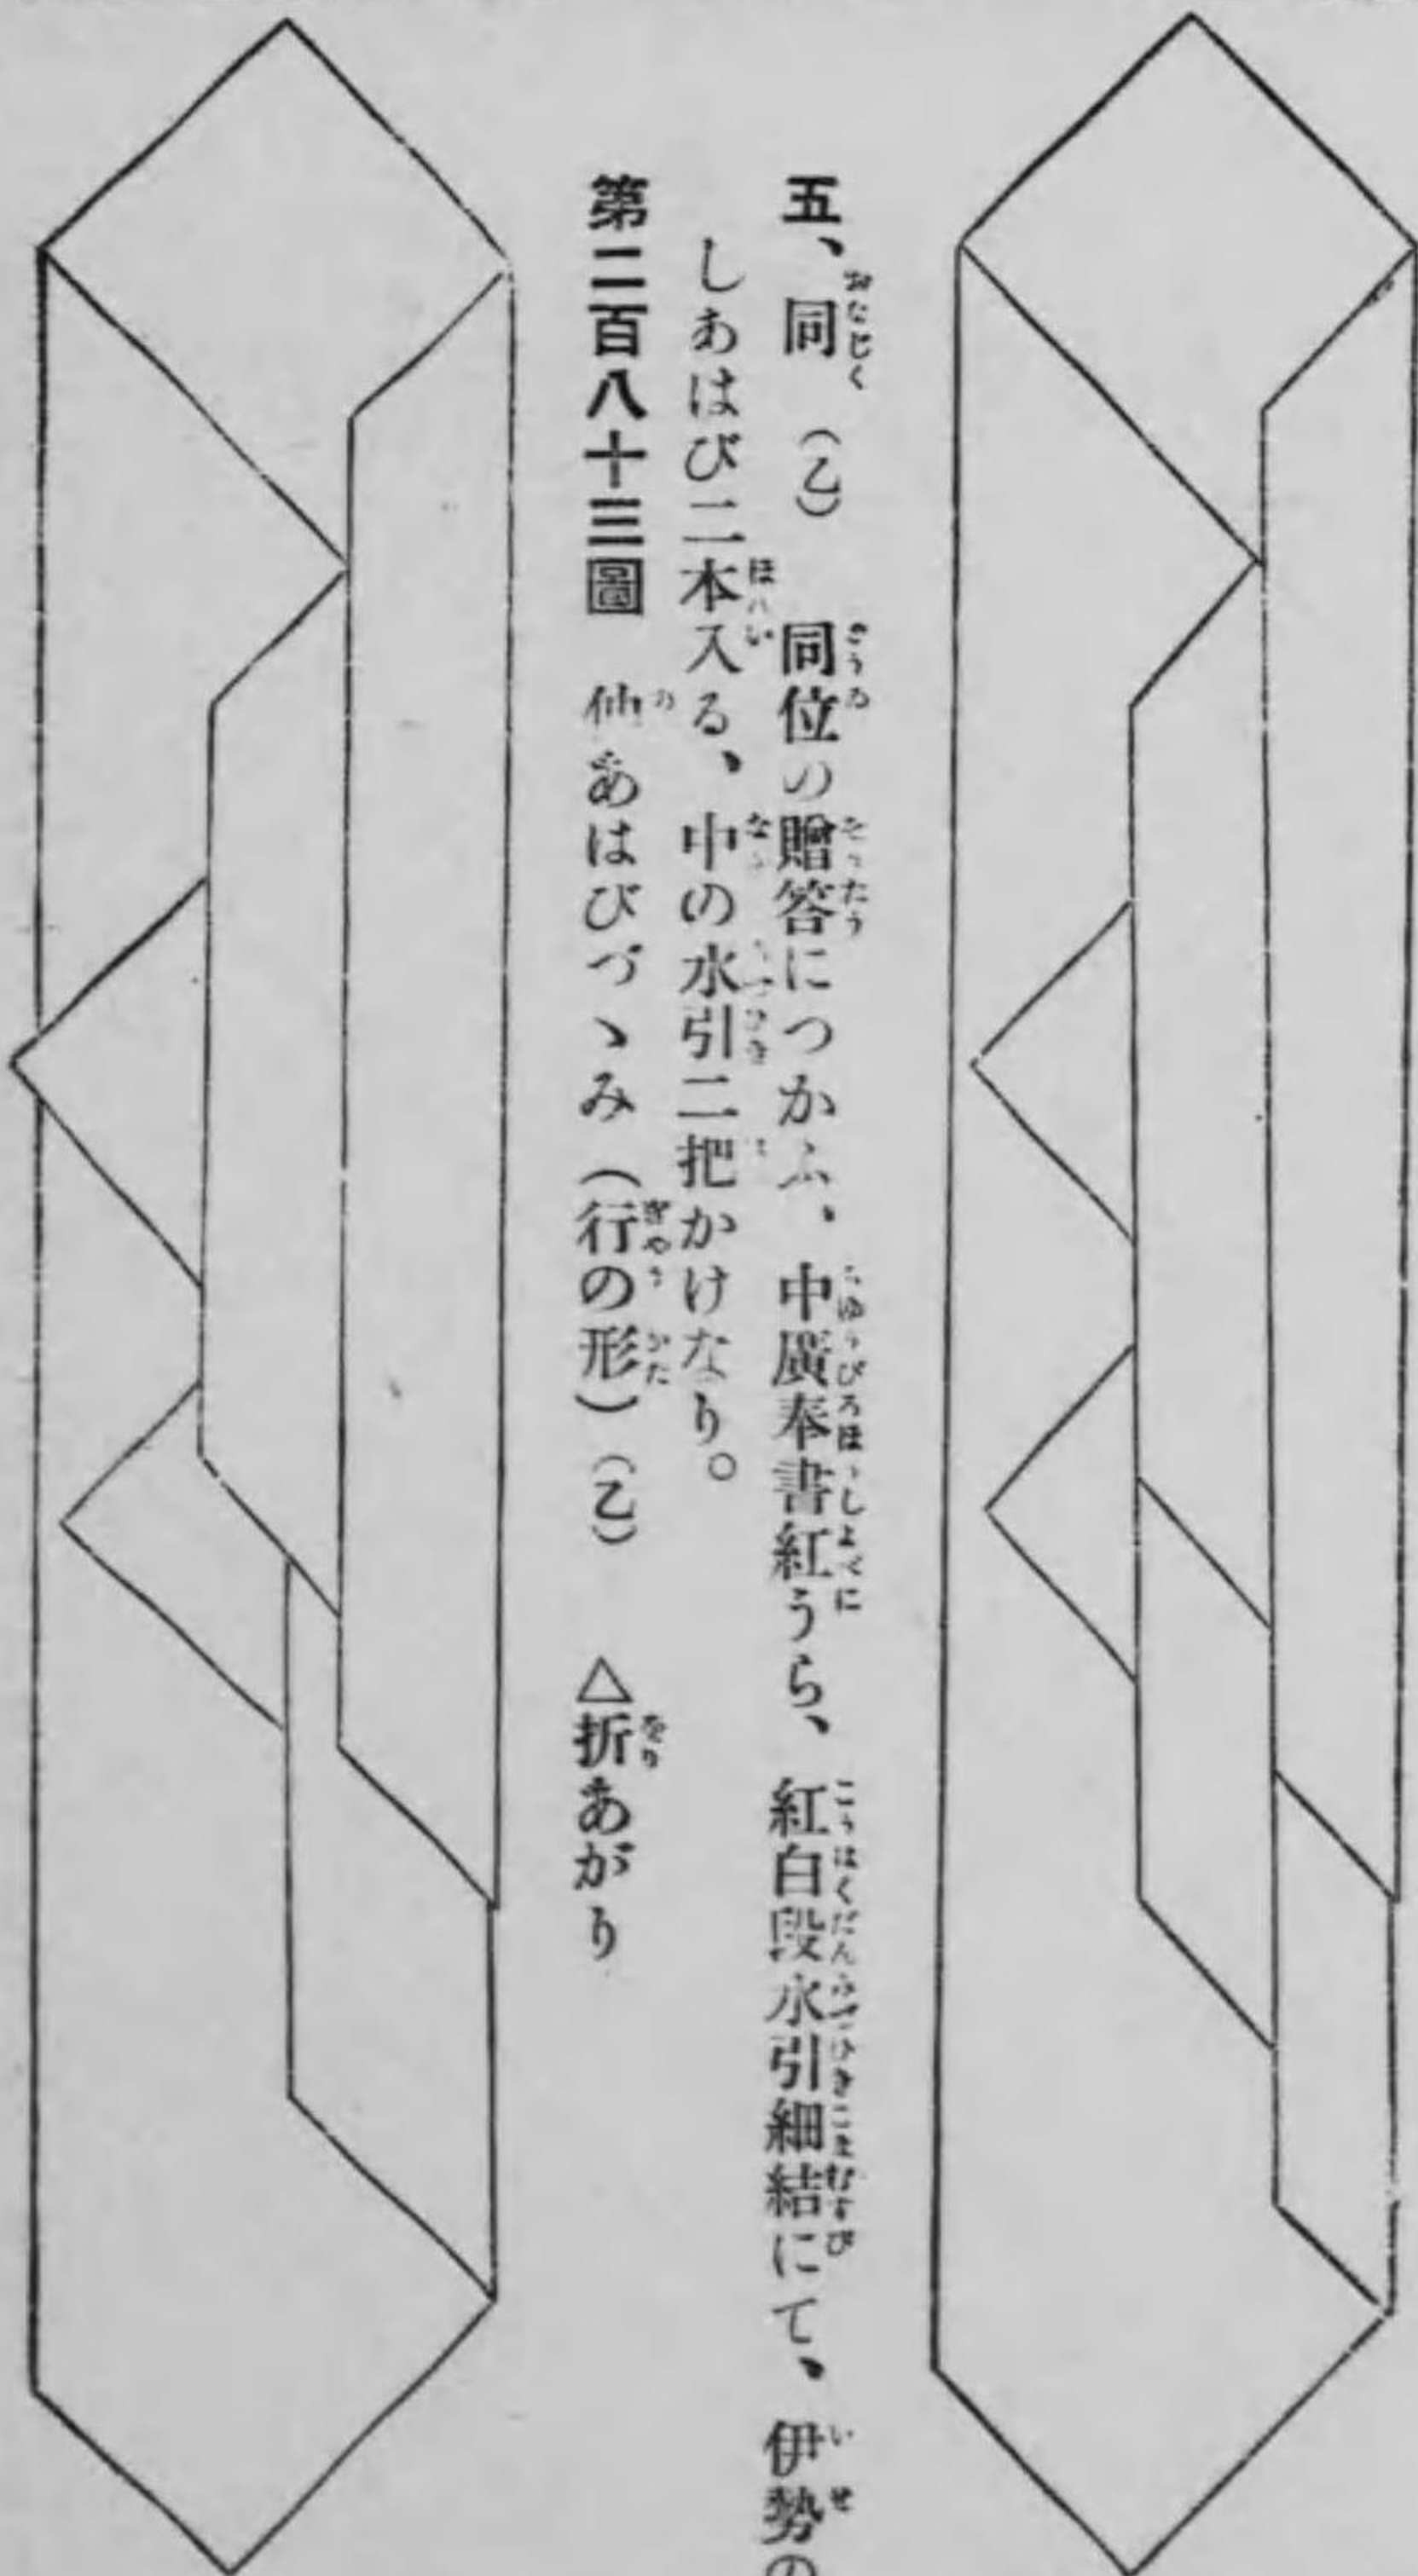 五、同（乙）　同位の贈答につかふ、中廣奉書紅うら、紅白段水引細結にて、伊勢の
しあはび二本入る、中の水引二把かけなり。
第二百八十三圖　あはびづゝみ（行の形）（乙）　△折あがり